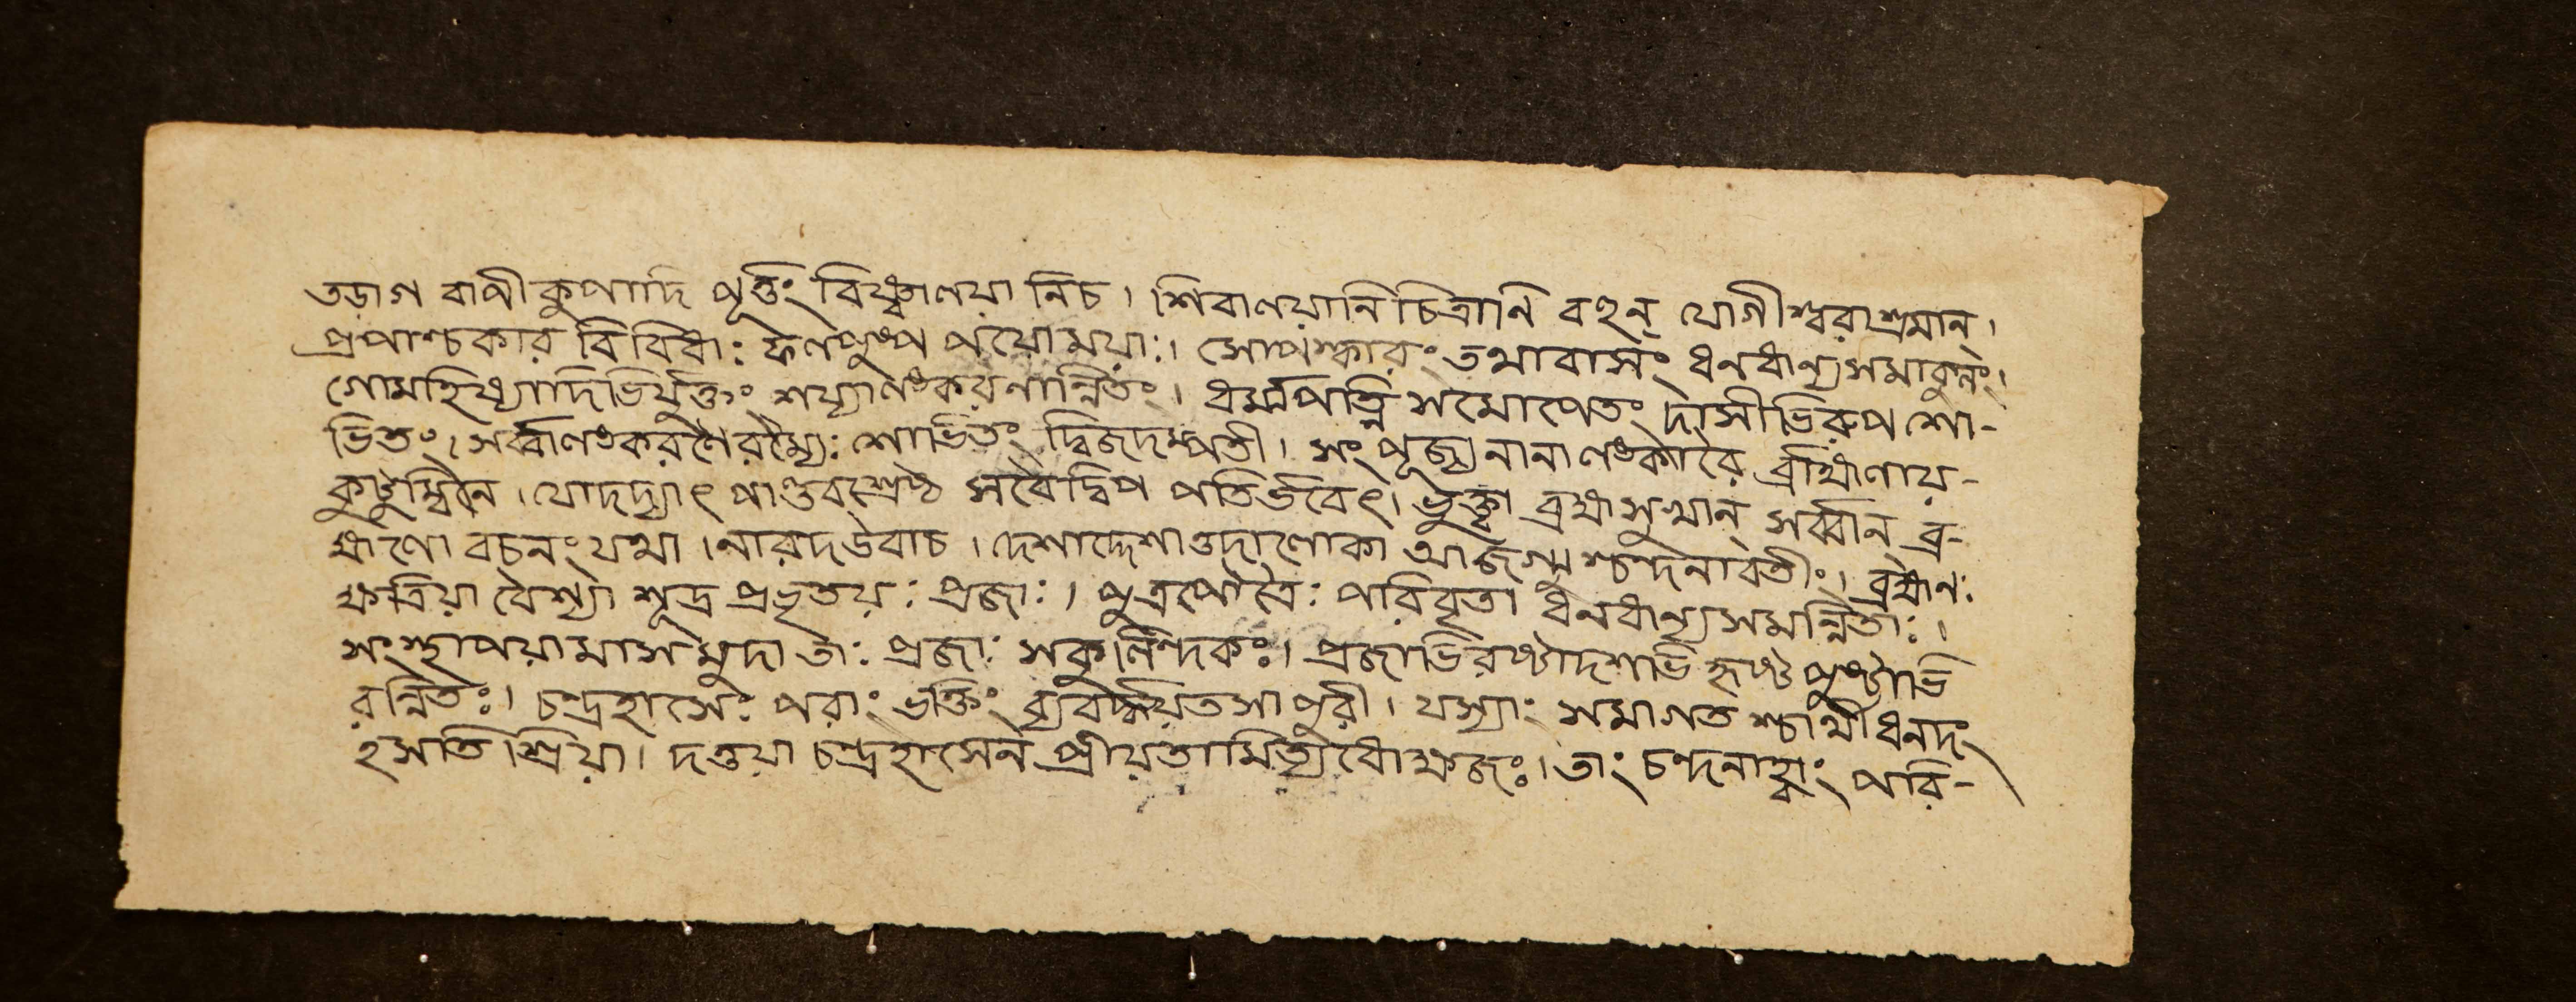 তড়াগ বাপীকুপাদি পূর্ত্তিং বিষ্ণ্বালয়ানিচ। শিবালয়ানি চিত্রানি বহুন্ যোগীশ্বরাশ্রমান্।
প্রপাশ্চকার বিবিধাঃ ফলপুষ্প পয়োময়াঃ। সোপস্কারং তথাবাসং ধনধান্যসমাবৃতং।
গোমহিষ্যাদিভির্যুক্তং শয্যালংকরনান্নিতং। ধর্ম্মপত্নি সমোপেতং দাসীভিরুপ শো-
ভিতং। সর্ব্বালংকরণৈরম্যৈঃ শোভিতং দ্বিজদম্পতী। সংপূজ্য নানালংকারৈ র্ব্রাহ্মণায়-
কুটুম্বিনে। যোদদ্যাৎ পাণ্ডবশ্রেষ্ঠ সবৈদ্বিপ পতির্ভবেৎ। ভুক্ত্বা ব্রহ্মসুখান্ সর্ব্বান্ ব্র-
হ্মণো বচনং যথা। নারদউবাচ। দেশাদ্দেশাত্তদালোকা আজগ্মু শ্চন্দনাবতীং। ব্রহ্মানঃ
ক্ষত্রিয়া বৈশ্যা শূদ্র প্রভৃতয়ঃ প্রজাঃ। পুত্রপৌত্রৈঃ পরিবৃতা ধনধান্যসমন্নিতাঃ।
সংস্থাপয়ামাসমুদা তাঃ প্রজাঃ সকুলিন্দকঃ। প্রজাভিরষ্টাদশভি র্হৃষ্ট পুষ্টাভি
রন্নিতঃ। চন্দ্রহাসেঃ পরাং ভক্তিং ব্যবর্দ্ধয়িতসা পুরী। যস্যাঃ সমাগত শ্চার্থী ধনদং
হসতি শ্রিয়া। দত্তয়া চন্দ্রহাসেন প্রীয়তামিত্যধোক্ষজঃ। তাং চন্দনাহ্বাং পরি-